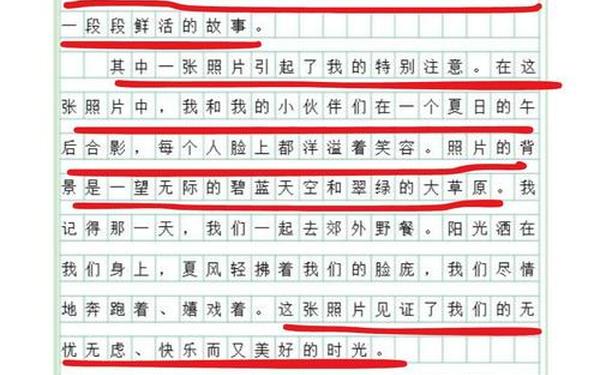 一段段鲜活的故事。
其中一张照片引起了我的特别注意。在这
张照片中，我和我的小伙伴们在一个夏日的午
后合影，每个人脸上都洋溢着笑容。照片的背
景是一望无际的碧蓝天空和翠绿的大草原。我
记得那一天，我们一起去郊外野餐。阳光洒在
我们身上，夏风轻拂着我们的脸庞，我们尽情
地奔跑着、嬉戏着。这张照片见证了我们的无
忧无虑、快乐而又美好的时光。